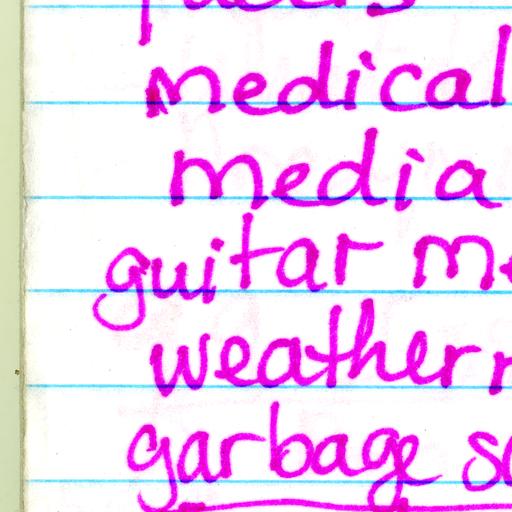 medical
media
guitar m
weather
garbage